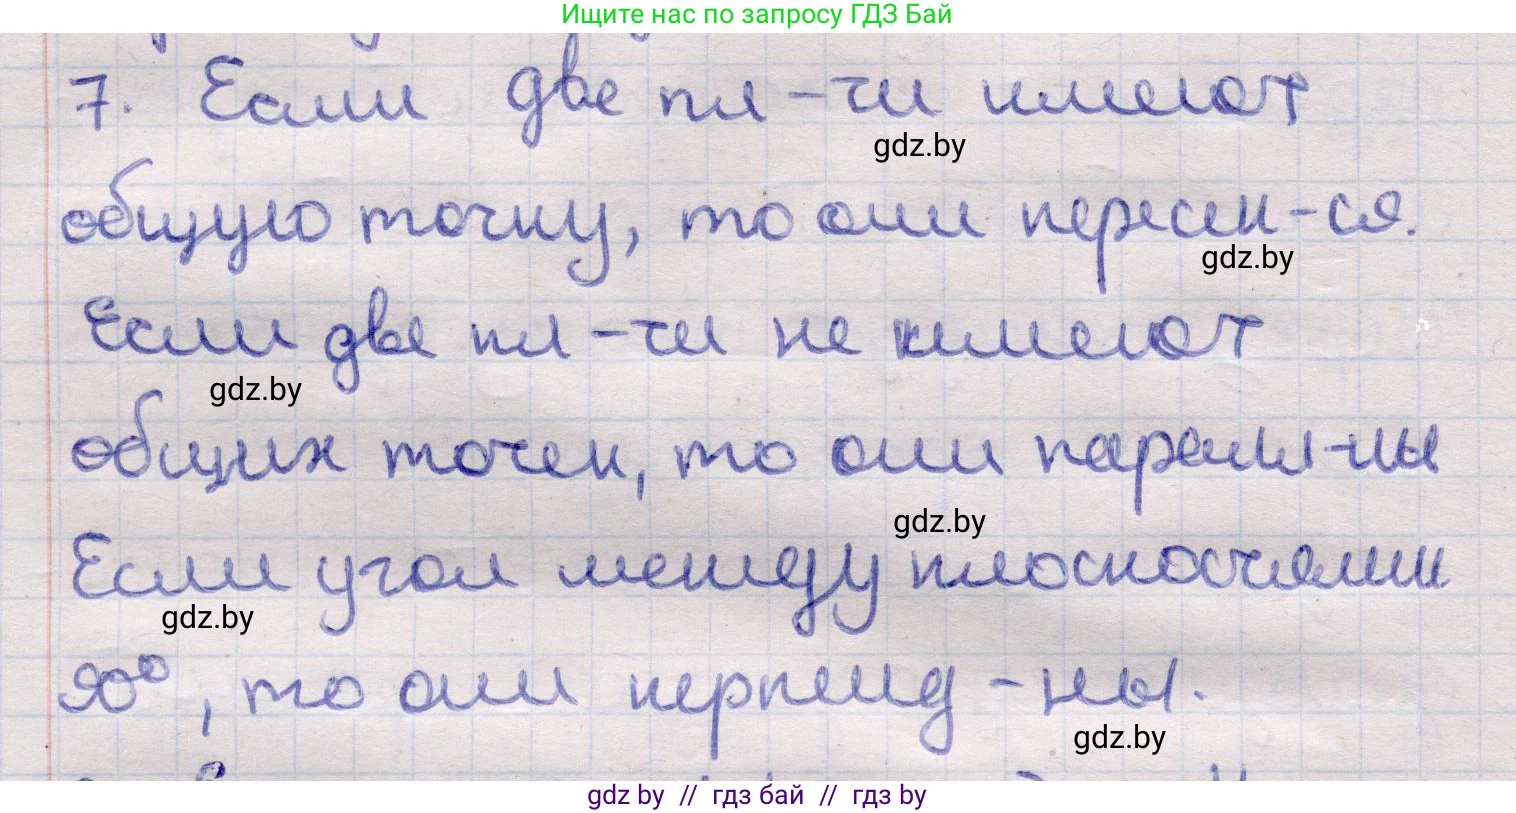 Ищите нас по запросу ГДЗ Бай
7. Если две пл-ти имеют
gdz.by
общую точку, то они пересек-ся.
gdz.by
Если две пл-ти не имеют
gdz.by
общих точек, то они паралл-ны
gdz.by
Если угол между плоскостями
gdz.by
90°, то они перпенд-ны.
gdz.by
gdz by // гдз бай // гдз by